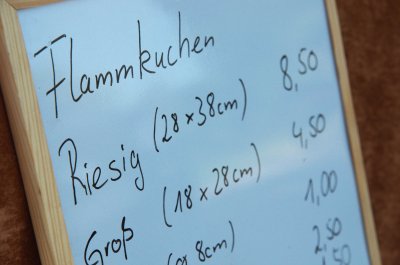 Flammkuchen
Riesig (28 x 38cm) 8,50
Groß (18 x 28cm) 4,50
8cm) 1,00
2,50